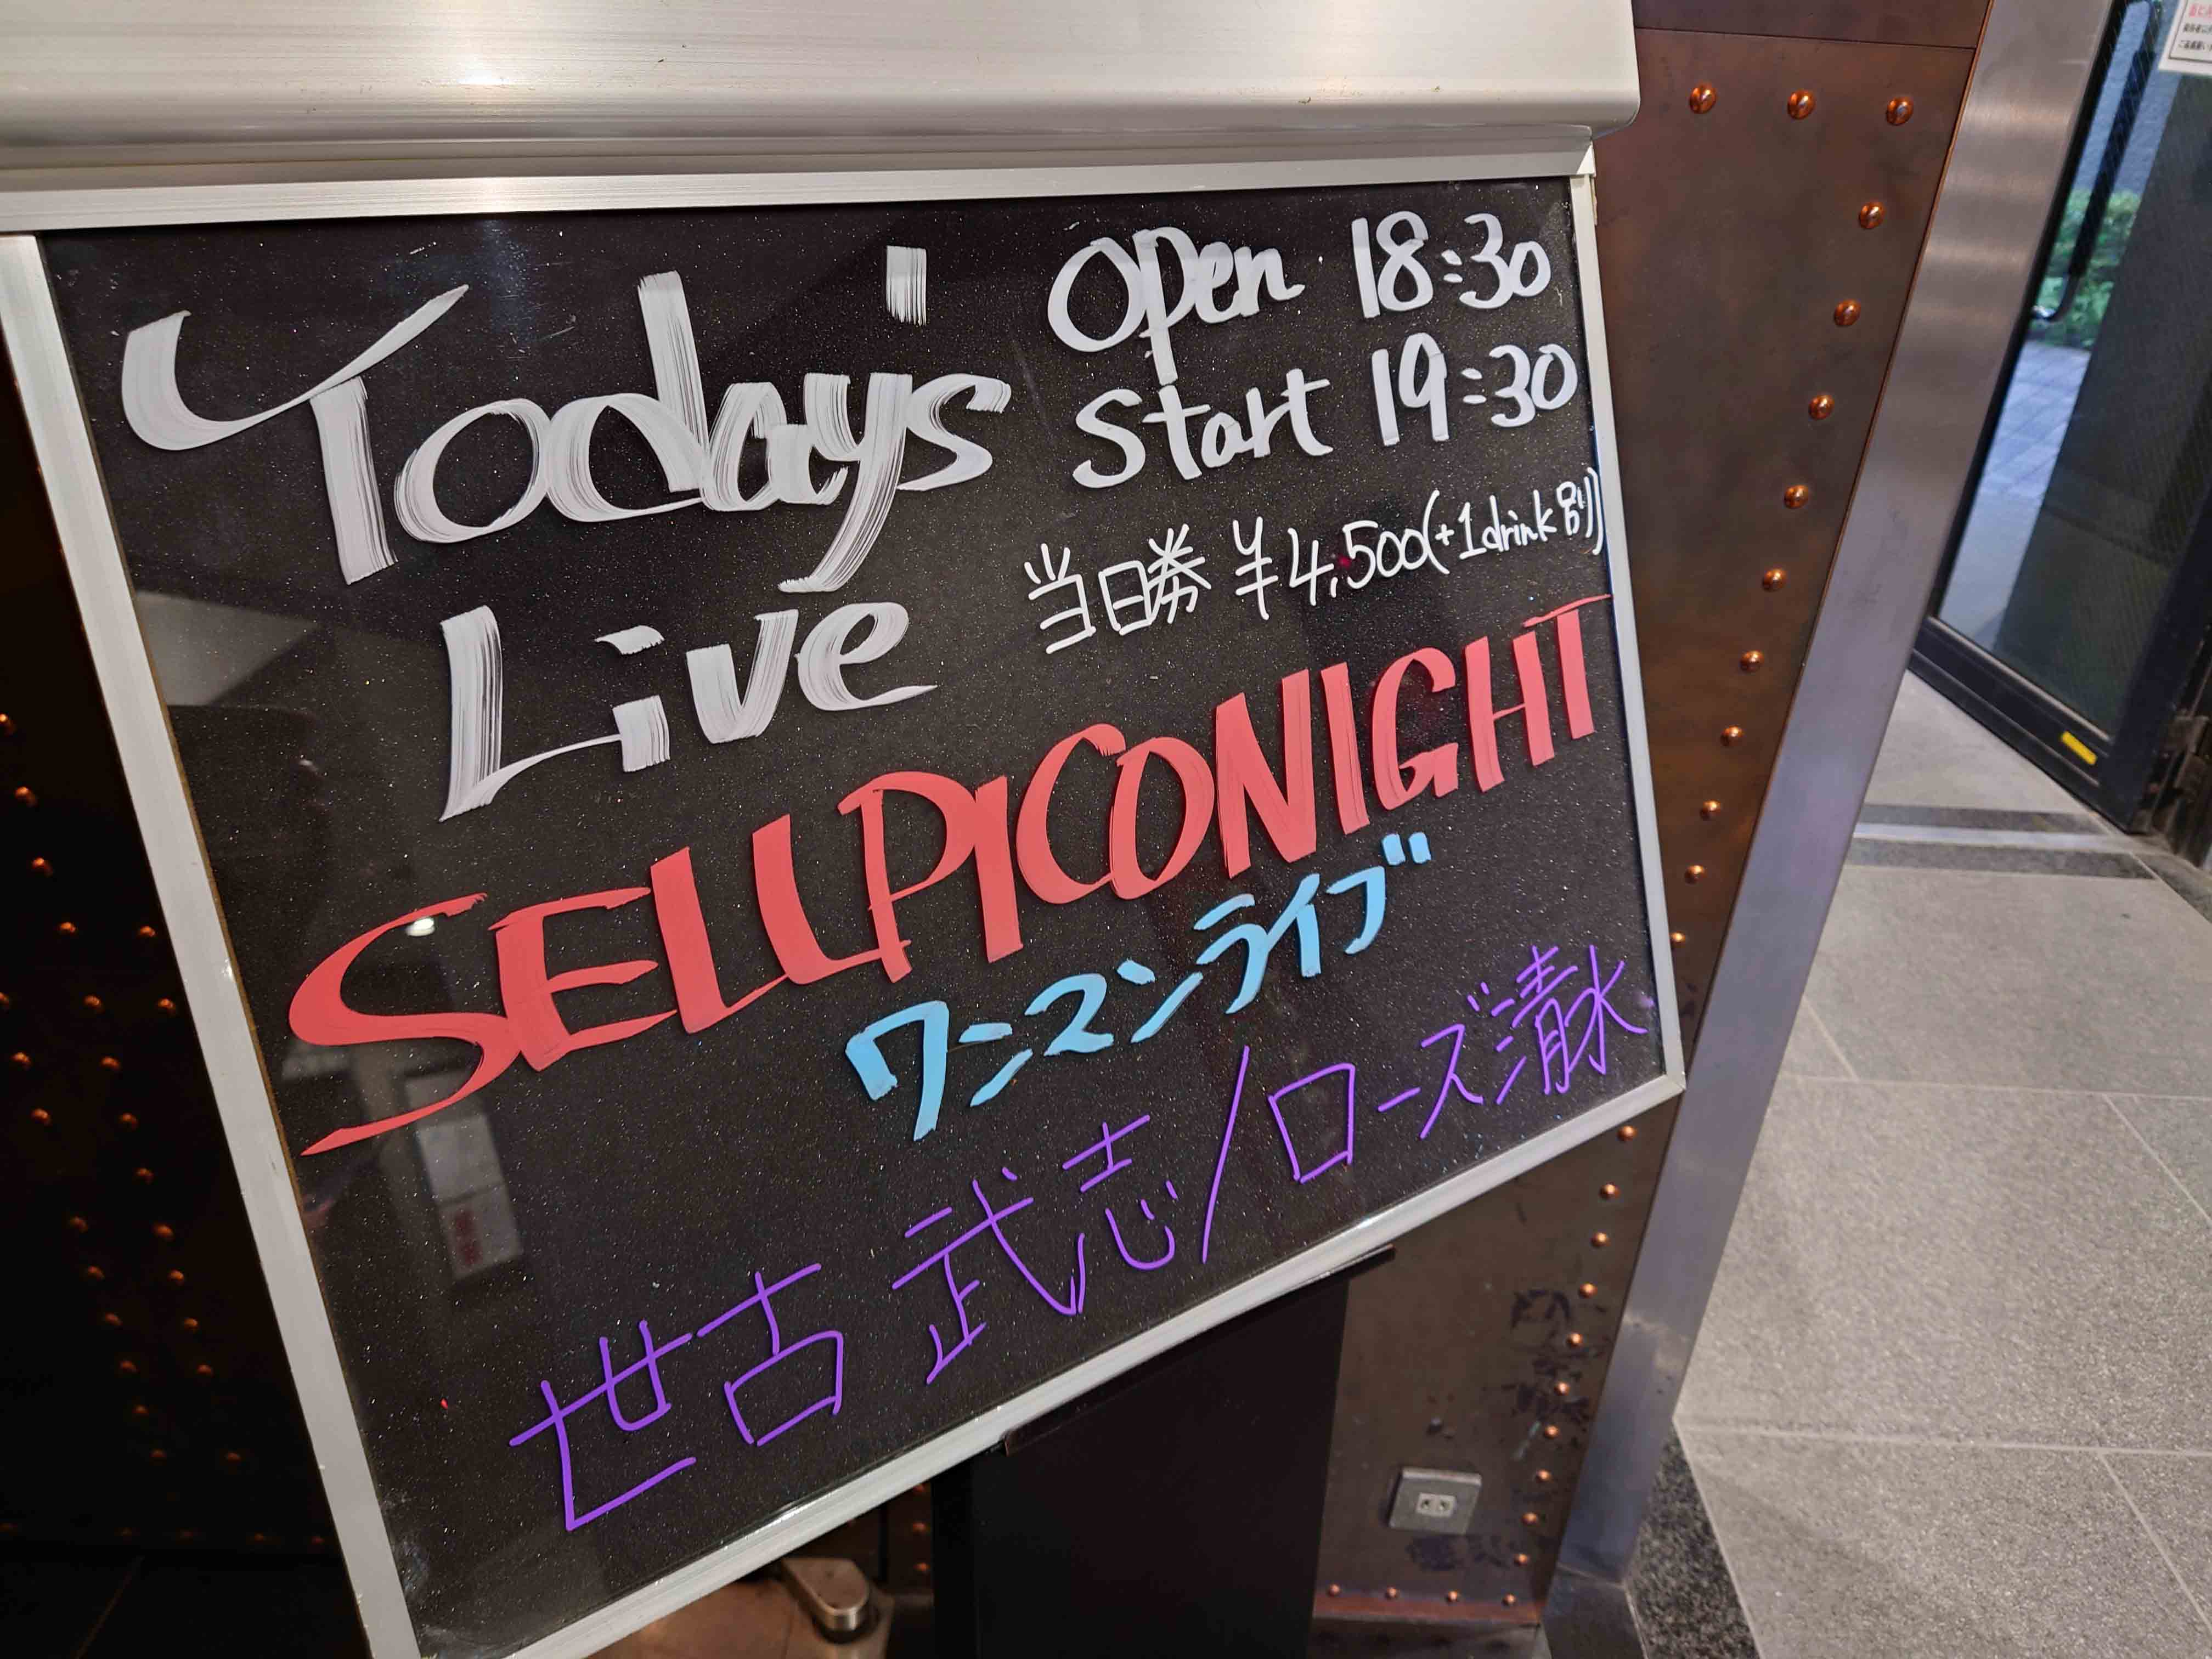 Today's
Live
Open 18:30
Start 19:30
当日券 ¥4,500(+1drink別)
SELLPICONIGHT
ワンマンライブ
世古 武志/ローズ清水